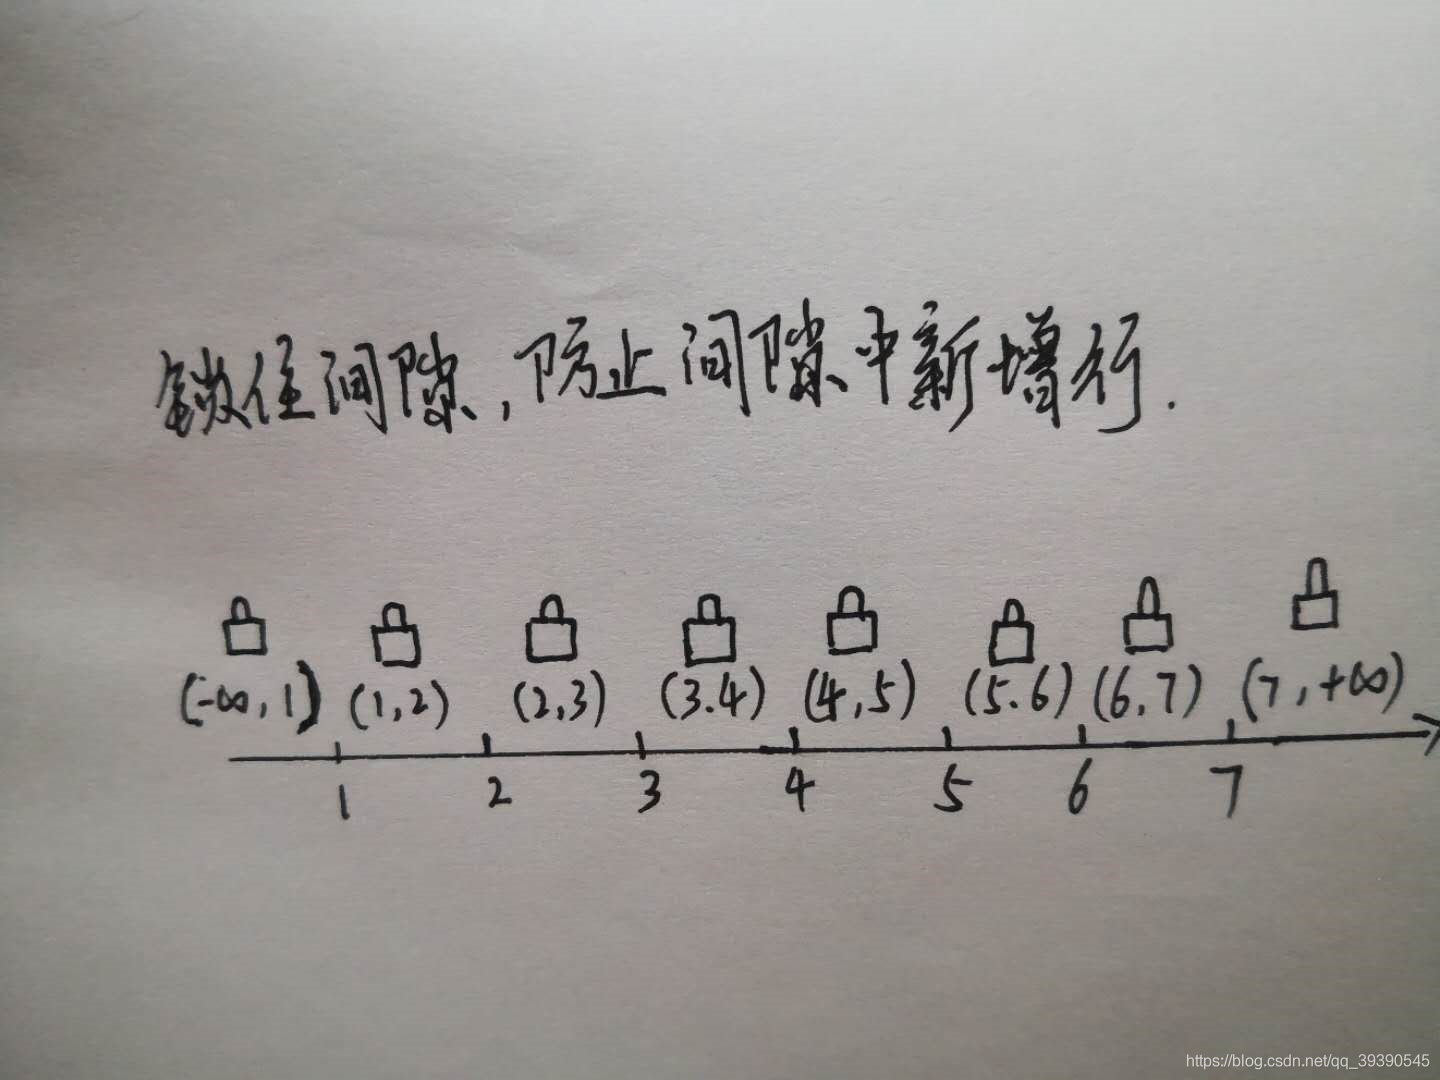 锁住间隙，防止间隙中新增行.
(-∞, 1) (1,2) (2,3) (3.4) (4,5) (5.6) (6,7) (7, +∞)
1 2 3 4 5 6 7
https://blog.csdn.net/qq_39390545